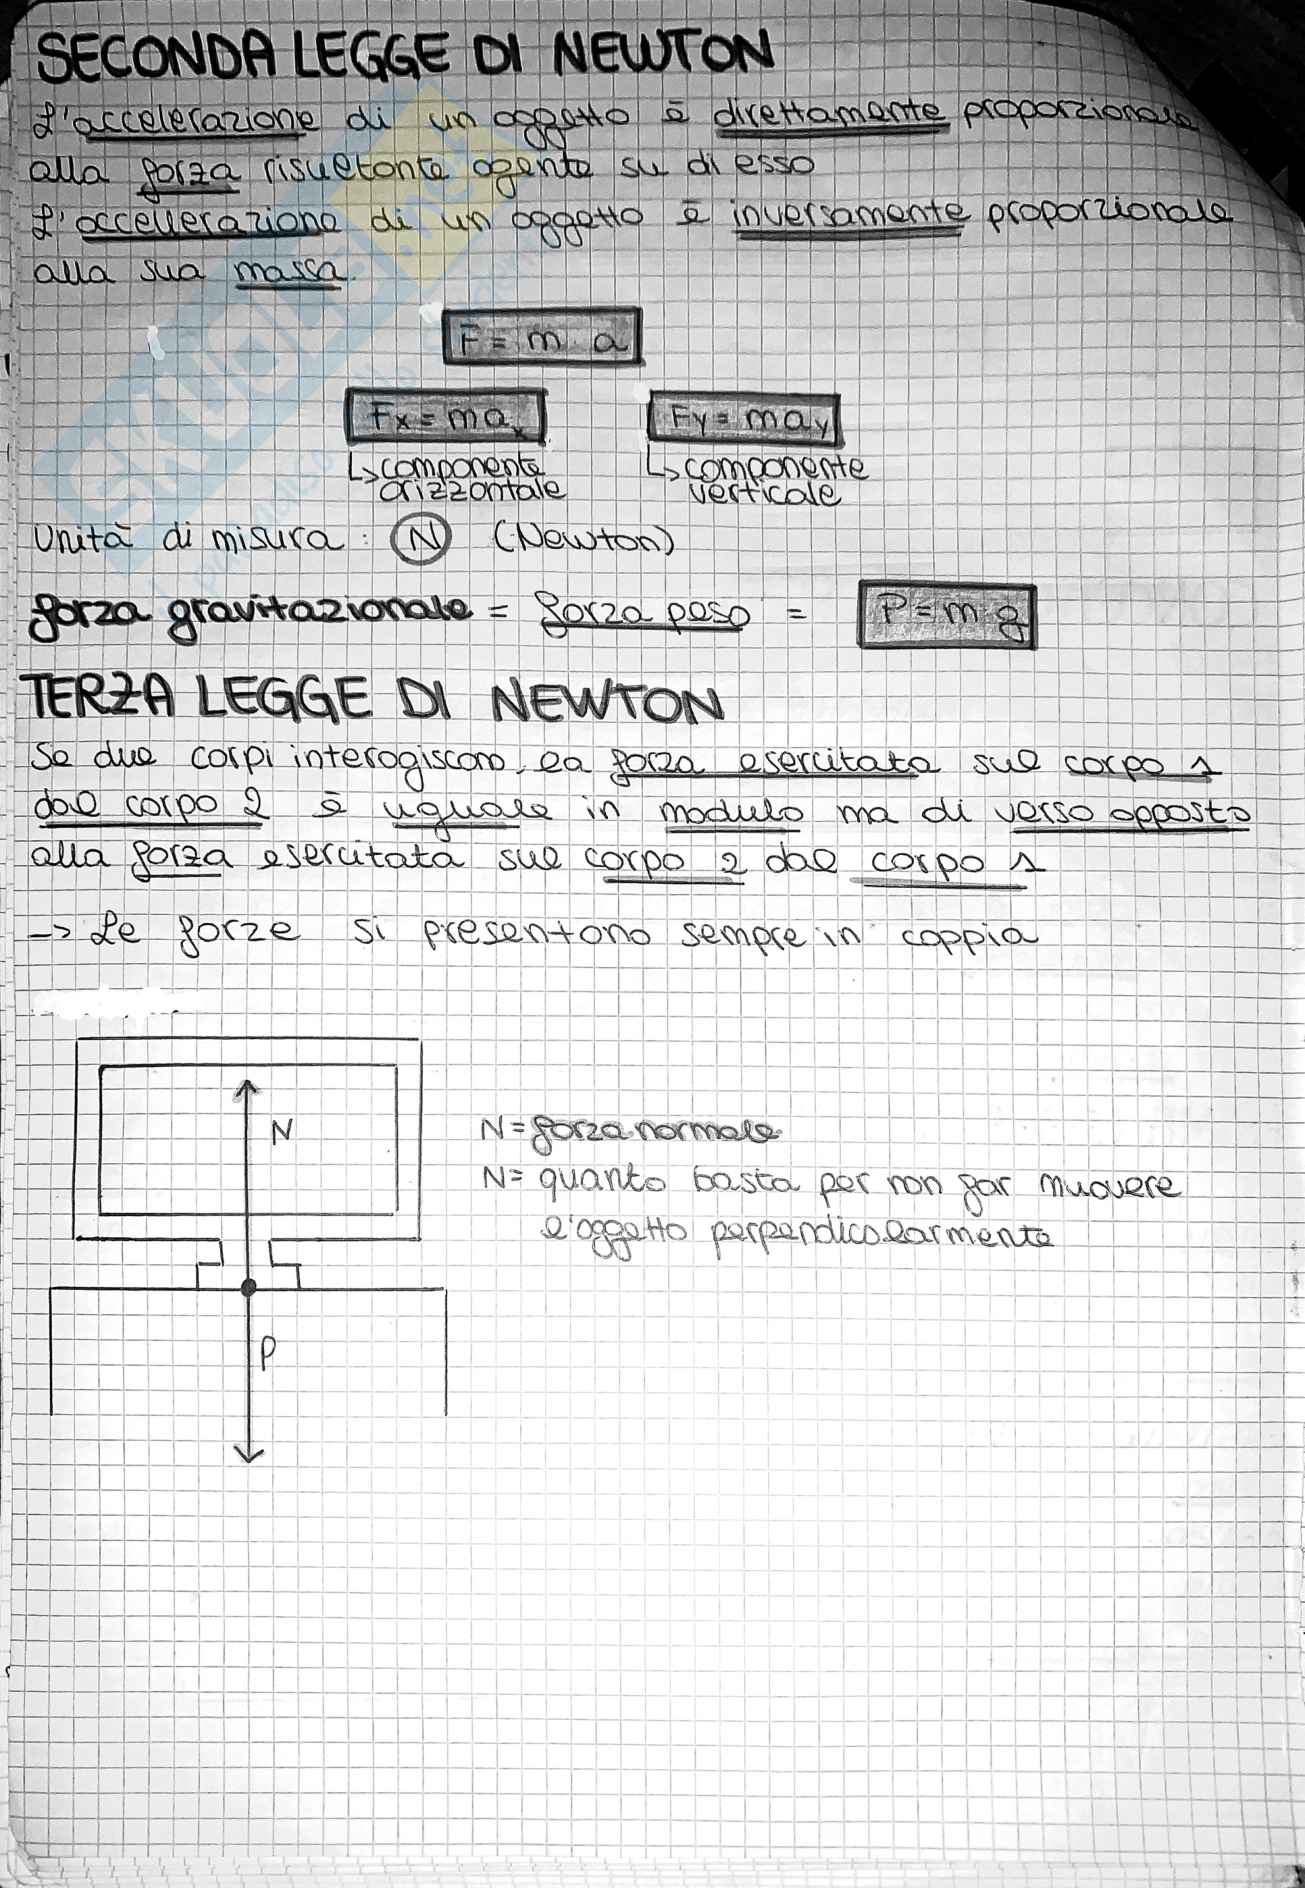 SECONDA LEGGE DI NEWTON
L'accelerazione di un oggetto è direttamente proporzionale
alla forza risultante agente su di esso
L'accellerazione di un oggetto è inversamente proporzionale
alla sua massa
F = m · a
Fx = max Fy = may
↳ componente ↳ componente
orizzontale verticale
Unità di misura : N (Newton)
forza gravitazionale = forza peso = P = m·g
TERZA LEGGE DI NEWTON
Se due corpi interagiscono, la forza esercitata sul corpo 1
dal corpo 2 è uguale in modulo ma di verso opposto
alla forza esercitata sul corpo 2 dal corpo 1
-> Le forze si presentono sempre in coppia
N
N = forza normale
N = quanto basta per non far muovere
l'oggetto perpendicolarmente
P